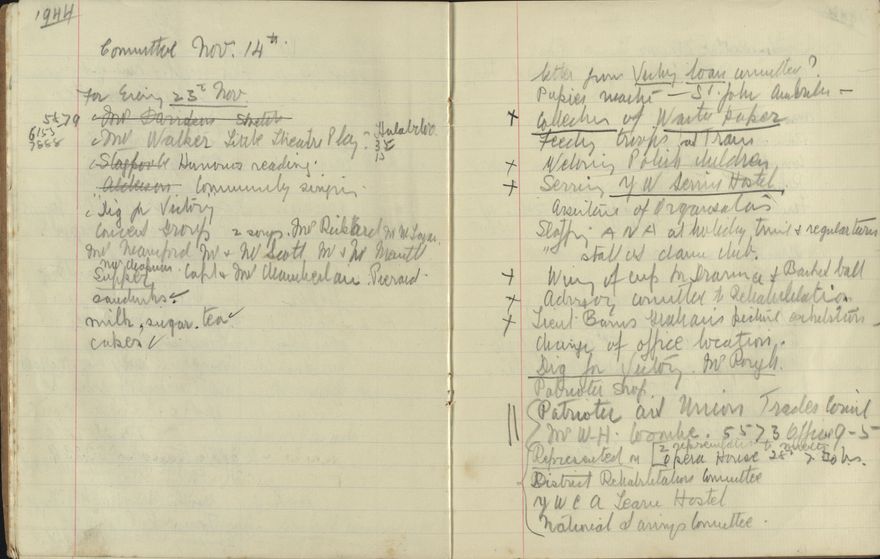 1944
Committee Nov. 14th.
For Evening 23rd Nov
5579 Mrs Davidson Sketch
6153 Mrs Walker Little Theatre Play
7888
35
15
Humorous reading.
Community singing.
Dig for Victory
Concert Group 2 songs. Mrs Rickard Mrs M Logan
Mrs Mr & Mrs Scott, Mr & Mrs
Mrs Chapman
Supper Capt & Mrs Chamberlain
sandwiches ✓
milk, sugar. tea ✓
cakes ✓
letter from Victory Loan committee?
— St. John Ambulance —
x Collection of Waste paper
troops at Trains
x Welcoming Polish children
x Serving Y W Service Hostel.
Assistance of Organisations
Staffing A R A at holiday time & regular turns
" stall at dance club.
x Wing of cup for Drama & Basket ball
x Advisory committee to Rehabilitation
x Lieut Barns Grahams picture exhibition
change of office location.
Dig for Victory. Mr
Patriotic Shop.
|| Patriotic and Union Trades Council
Mr W. H. Coombe. 5573 Office 9-5
2 representatives
Represented on [Opera House 28th 7.30 hrs.
District Rehabilitation Committee
Y W C A Leave Hostel
National Savings Committee.